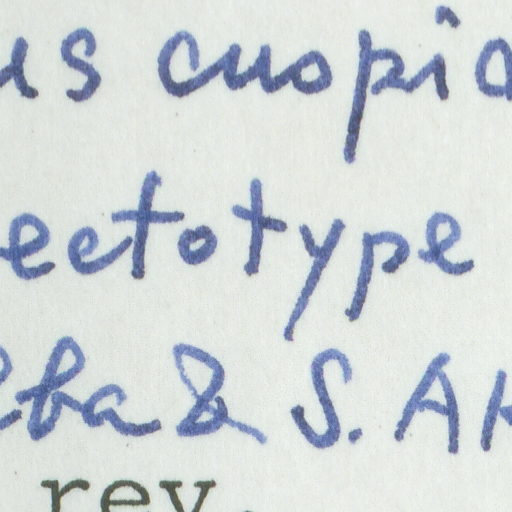 us cuopia
ectotype
ba & S. Ak
rev.